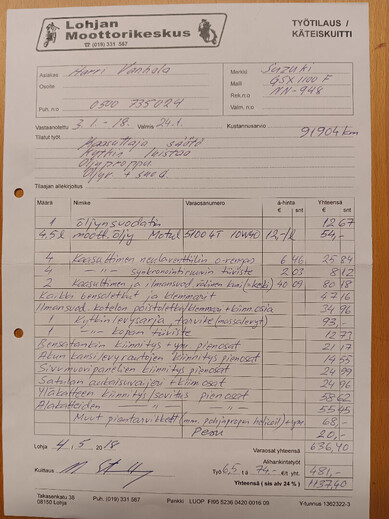 Lohjan
Moottorikeskus
☎ (019) 331 567
TYÖTILAUS /
KÄTEISKUITTI
Asiakas Harri Vanhala
Osoite
Puh. n:o 0500 735024
Merkki Suzuki
Malli GSX 1100 F
Rek.n:o NN-948
Valm. n:o
Vastaanotettu 3.1.-18. Valmis 24.1.
Kustannusarvio 91904 km
Tilatut työt Kaasuttaja säätö
Kytkin luistaa
Öljyproppu
Öljyt + suod
Tilaajan allekirjoitus
Määrä Nimike Varaosanumero á-hinta € snt Yhteensä € snt
1 Öljynsuodatin 12 67
4,5 l moott.öljy Motul 5100 4T 10W40 12,-/l 54,-
4 Kaasuttimen neulaventtiilin o-rengas 6 46 25 84
4 -"- -"- synkronointiruuvin tiiviste 2 03 8 12
2 Kaasuttimen ja ilmansuod välinen kumi 40 09 80 18
Kaikki bensaletkut ja klemmarit 47 16
Ilmansuod. kotelon päistöletku/klemmari + kiinn.osia 34 96
Kytkin/levysarja, tarvike 93,-
1 -"- kopan tiiviste 12 71
Bensatankin kiinnitys + ym. pienosat 21 17
Akun kansi/levy rautojen kiinnitys pienosat 14 55
Sivumuovipanelien kiinnitys pienosat 24 99
Satulan + kiinn.osat 24 96
Yläkatteen kiinnitys/sovitus pienosat 58 62
Alakatteiden -"- -"- -"- 55 45
Muut pientarvikkeet (mm. pohjapropun helicoil) + ym 68,-
20,-
Lohja 4.5.2018
Varaosat yhteensä 636,40
Alihankintatyöt
Kuittaus
Työ 6,5 t á 74,- €/t 481,-
Yhteensä (sis alv 24 %) 1137,40
Takasenkatu 38
08150 Lohja
Puh. (019) 331 567
Pankki : LUOP FI95 5236 0420 0016 09
Y-tunnus 1362322-3